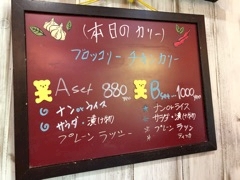 (本日のカリー)
ブロッコリー チキン カリー
A set 880
ナンorライス
サラダ・漬け物
プレーンラッシー
B set 1000
ナンorライス
サラダ・漬け物
プレーン ラッシー